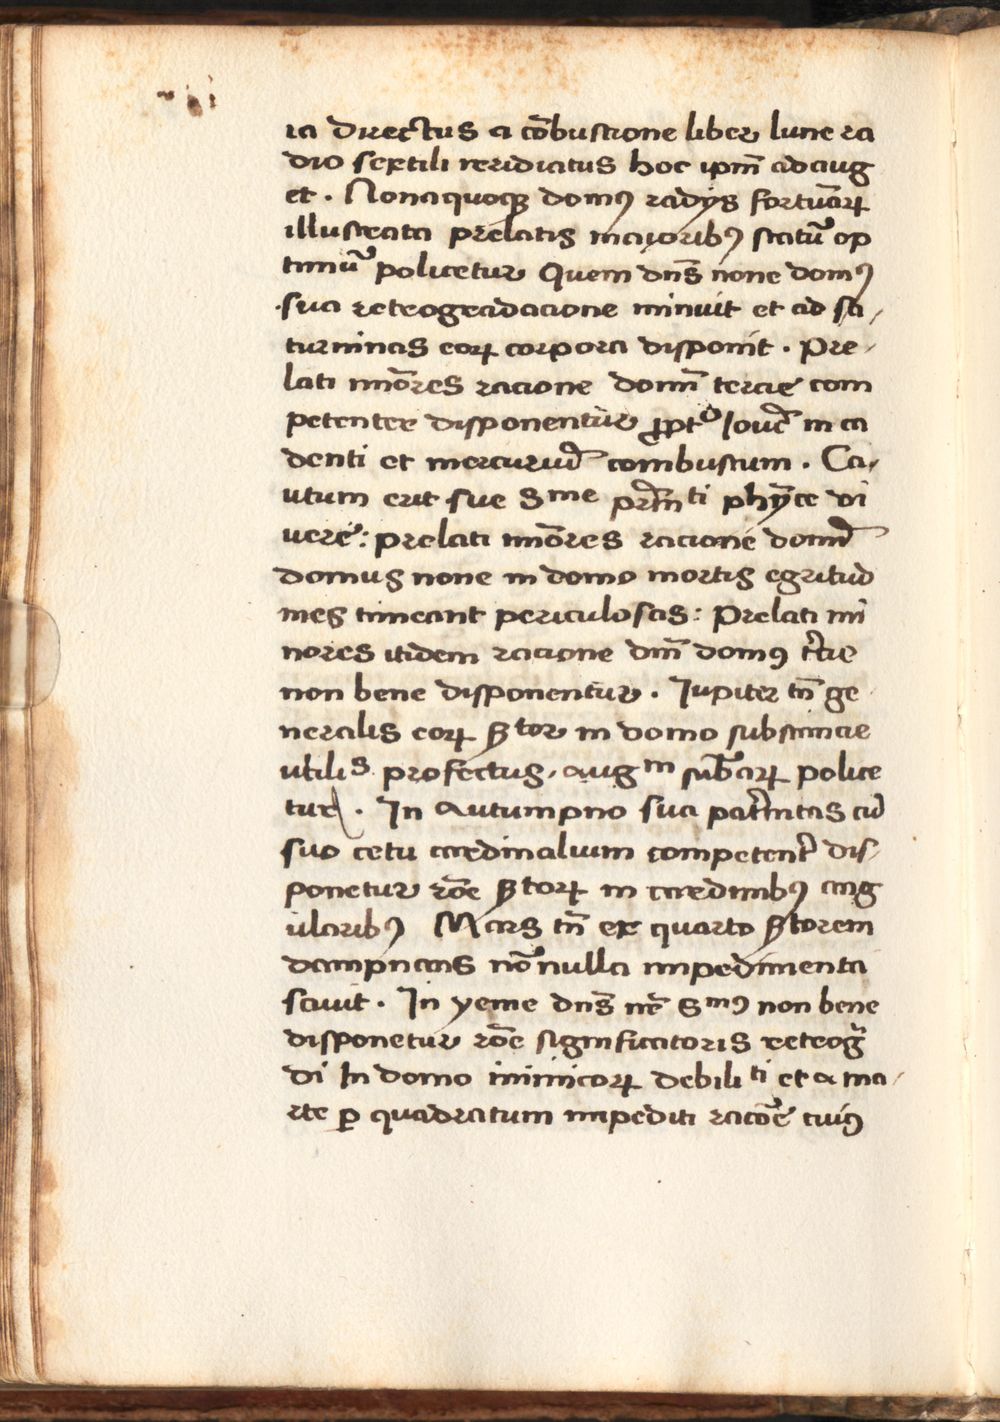 ia directus a cōbustione liber lune ra
dio sextili reridiatus hoc ipm̄ adaug
et . Nonaquoqꝫ domꝰ radijs fortun̄aꝝ
illustrata prelatis maioribꝰ statū op
timū policetur Quem dn̄s none domꝰ
sua retrogradacione minuit et ad sa/
turninas eoꝝ corpora disponit . Pre/
lati mīores racione domī tercie com
petenter disponentur ꝓpt Iouē in ca
denti et mercuriū combustum . Ca/
utum erit sue Sᵐᵉ phyce vi
vere : prelati mīores racione domī
domus none in domo mortis egritud
ines timeant periculosas : Prelati mi
nores itidem racione dn̄i domꝰ tercie
non bene disponentur . Iupiter tn̄ ge
neralis eoꝝ S̄tor in domo substancie
utilis profectus , augᵐ subāꝝ police
tur . In Autumpno sua pat̄nitas cū
suo cetu cardinalium competent̄ dis/
ponetur rōe S̄toꝝ in cardinibꝰ ang
ularibꝰ Mars tn̄ ex quarto S̄torem
dampnans nōnulla impedimenta
scivit . In yeme dn̄s nr̄ Sᵐꝰ non bene
disponetur rōe significatoris retroḡ
di In domo inimicoꝝ debiliᵗⁱ et a ma/
rte ꝑ quadratum impediti racōe cuiꝰ